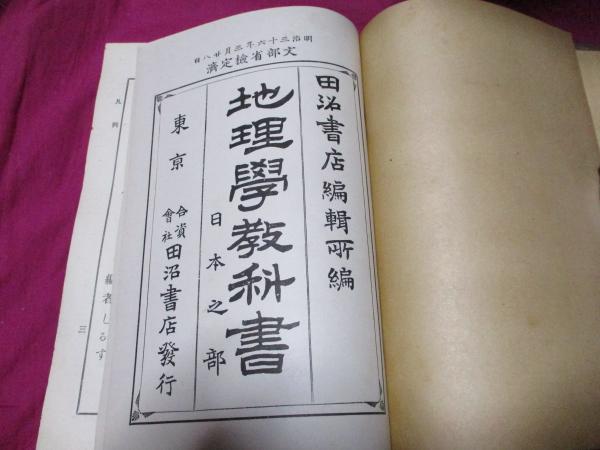 明治三十六年三月廿八日
文部省検定濟
田沼書店編輯所編
地理學敎科書
日本之部
東京
合資會社 田沼書店發行
凡例
編者しるす
三